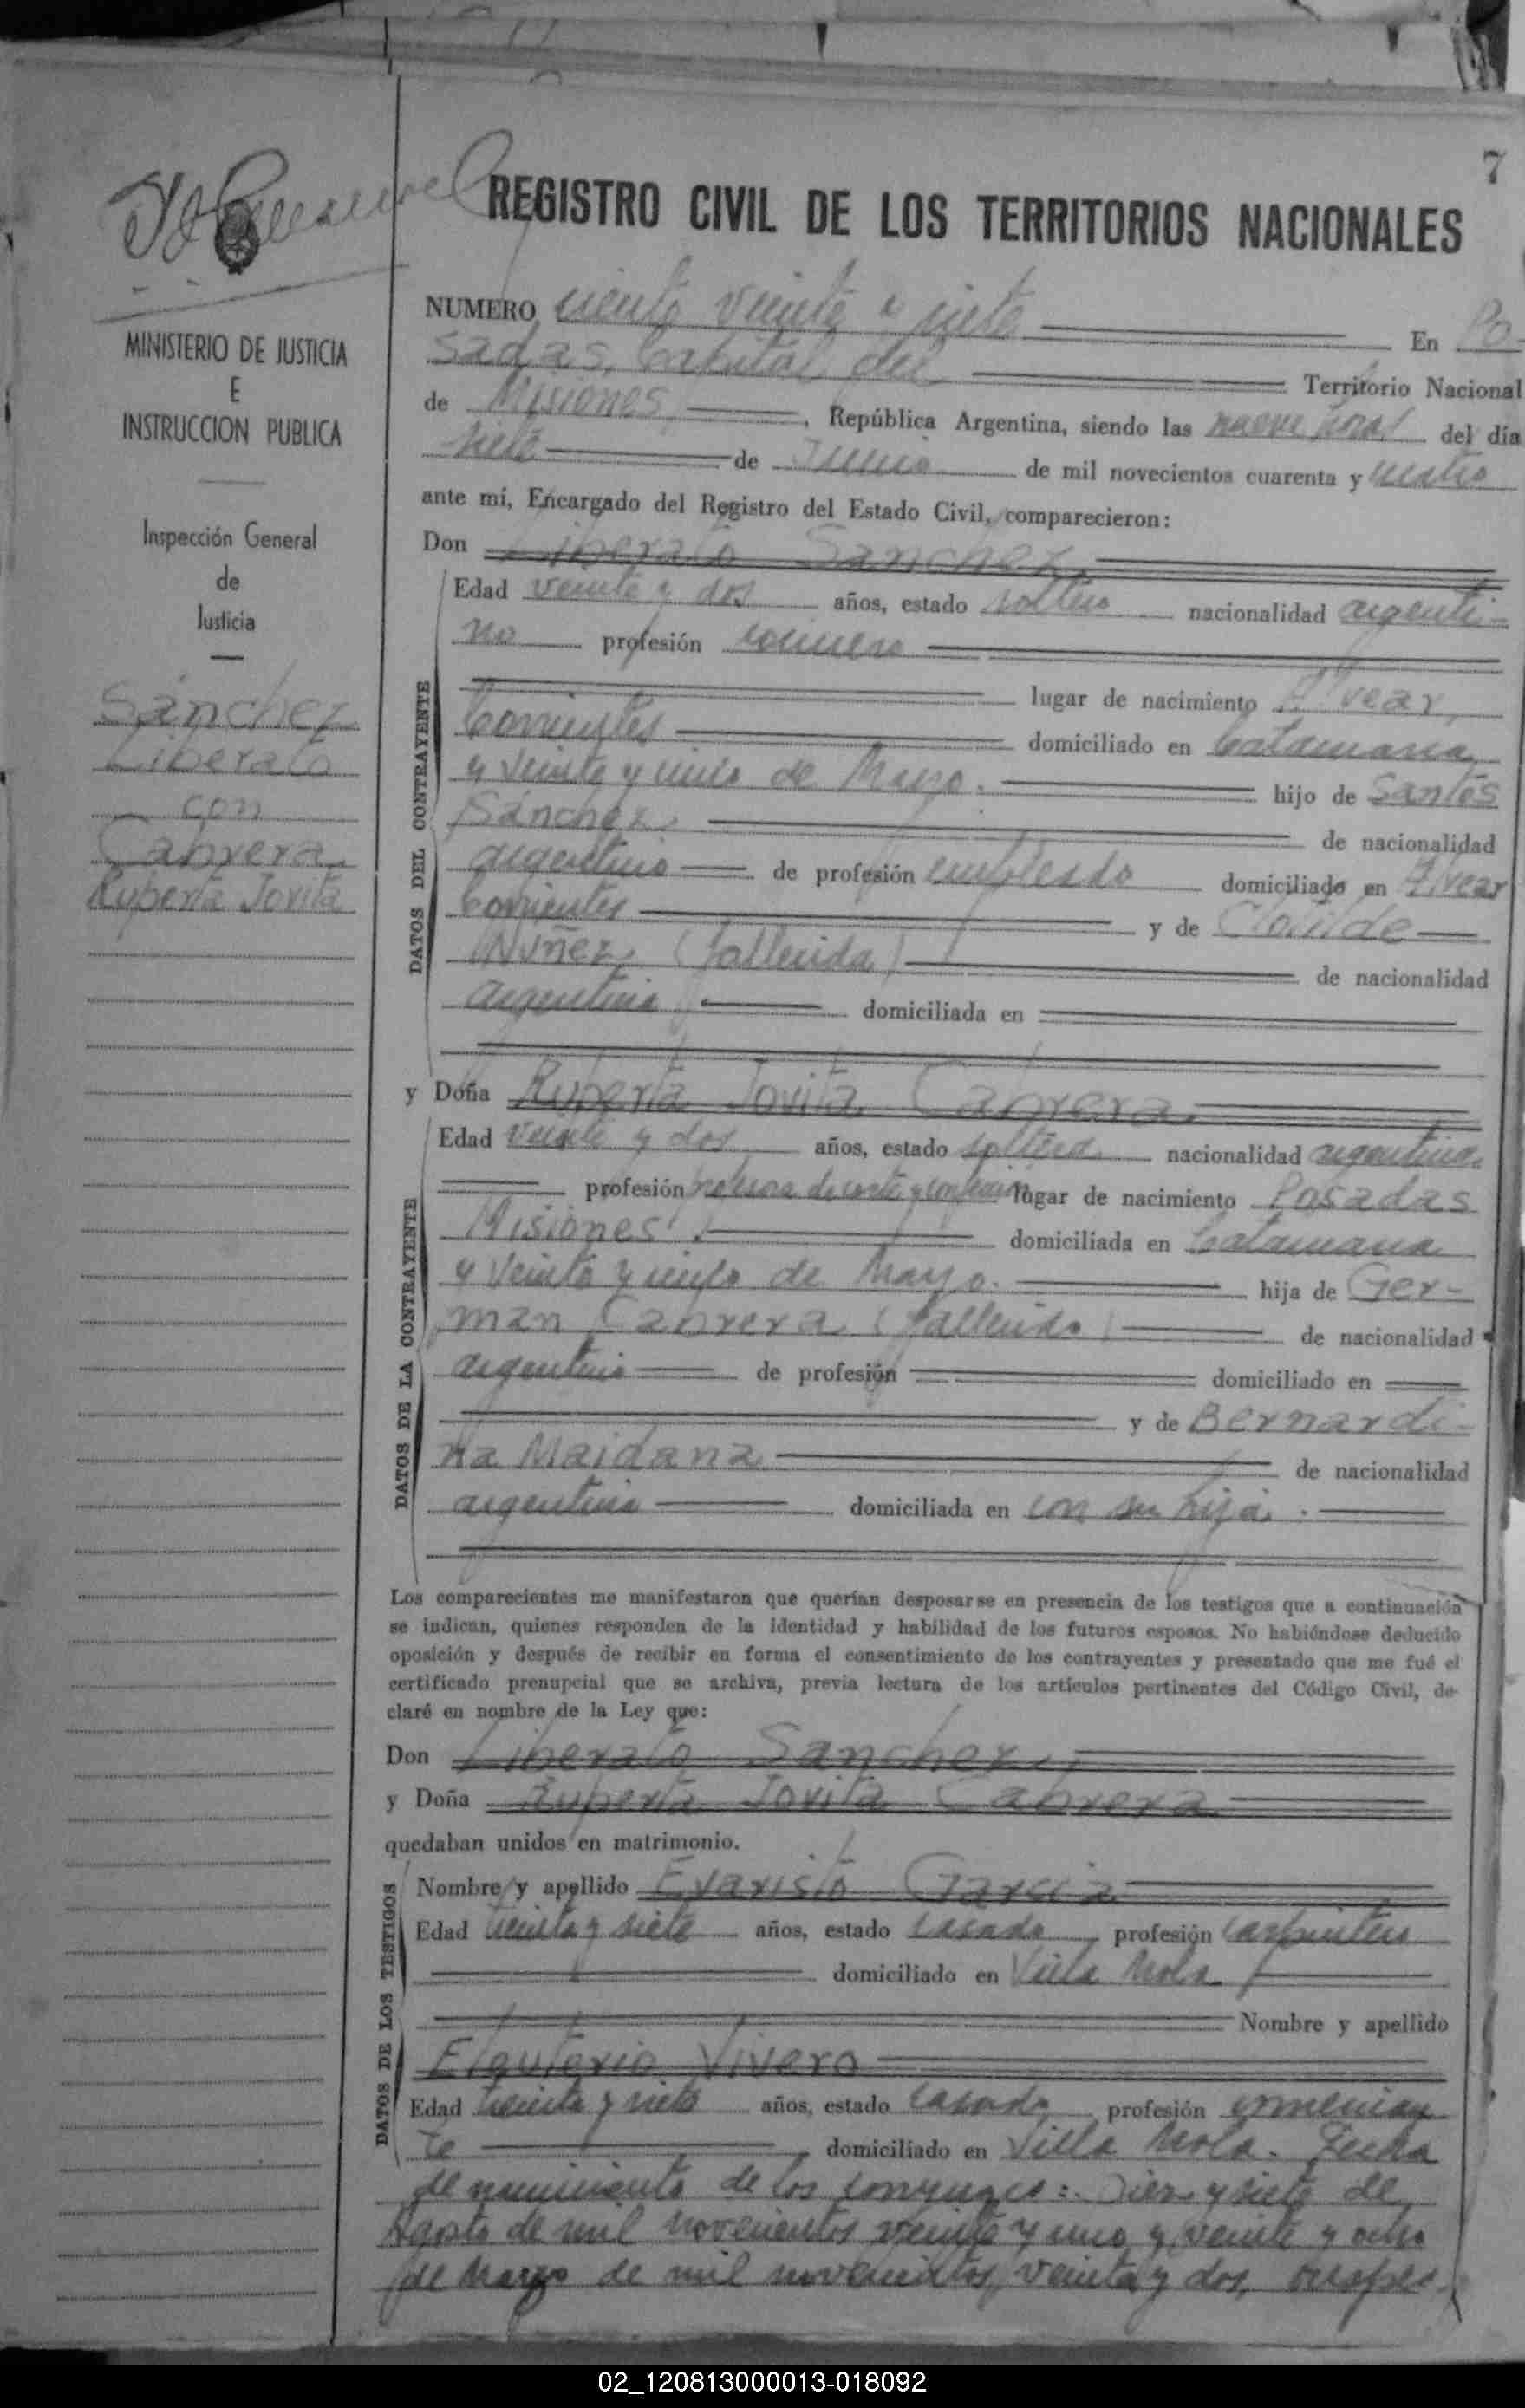 7
REGISTRO CIVIL DE LOS TERRITORIOS NACIONALES
MINISTERIO DE JUSTICIA
E
INSTRUCCION PUBLICA
Inspección General
de
Justicia
Sánchez
Liberato
con
Cabrera
Ruperta Jovita
NUMERO ciento veinte y siete En Po-
sadas, Capital del Territorio Nacional
de Misiones, República Argentina, siendo las nueve horas del día
siete de Junio de mil novecientos cuarenta y cuatro
ante mí, Encargado del Registro del Estado Civil, comparecieron:
Don Liberato Sánchez
DATOS DEL CONTRAYENTE
Edad veinte y dos años, estado soltero nacionalidad argenti-
no profesión
lugar de nacimiento Alvear,
Corrientes domiciliado en Catamarca
y veinte y cinco de Mayo. hijo de Santos
Sánchez, de nacionalidad
argentino de profesión empleado domiciliado en Alvear
Corrientes y de Clotilde
Núñez (fallecida) de nacionalidad
argentina domiciliada en
y Doña Ruperta Jovita Cabrera
DATOS DE LA CONTRAYENTE
Edad veinte y dos años, estado soltera nacionalidad argentina
profesión profesora de corte y confección lugar de nacimiento Posadas
Misiones domiciliada en Catamarca
y veinte y cinco de Mayo. hija de Ger-
mán Cabrera (fallecido) de nacionalidad
argentino de profesión domiciliado en
y de Bernardi-
na Maidana de nacionalidad
argentina domiciliada en con su hija.
Los comparecientes me manifestaron que querían desposarse en presencia de los testigos que a continuación
se indican, quienes responden de la identidad y habilidad de los futuros esposos. No habiéndose deducido
oposición y después de recibir en forma el consentimiento de los contrayentes y presentado que me fué el
certificado prenupcial que se archiva, previa lectura de los artículos pertinentes del Código Civil, de-
claré en nombre de la Ley que:
Don Liberato Sánchez,
y Doña Ruperta Jovita Cabrera
quedaban unidos en matrimonio.
DATOS DE LOS TESTIGOS
Nombre y apellido Evaristo García
Edad treinta y siete años, estado casado profesión carpintero
domiciliado en Villa Mola
Nombre y apellido
Eleuterio Vivero
Edad treinta y siete años, estado casado profesión comercian
te domiciliado en Villa Mola. Fecha
de nacimiento de los conyuges: Diez y siete de
Agosto de mil novecientos veinte y uno y veinte y ocho
de Marzo de mil novecientos veinte y dos, respec-
02_120813000013-018092